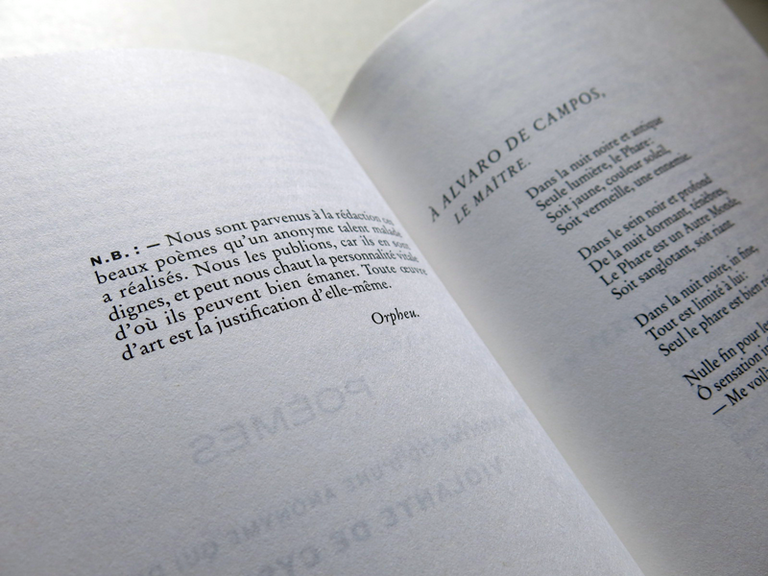 N.B. : — Nous sont parvenus à la rédaction ces
beaux poèmes qu'un anonyme talent malade
a réalisés. Nous les publions, car ils en sont
dignes, et peut nous chaut la personnalité vitale
d'où ils peuvent bien émaner. Toute œuvre
d'art est la justification d'elle-même.
Orpheu.
POÈMES
ANONYME QUI
VIOLANTE DE CYS
À ALVARO DE CAMPOS,
LE MAÎTRE.
Dans la nuit noire et antique
Seule lumière, le Phare:
Soit jaune, couleur soleil,
Soit vermeille, une ennemie.
Dans le sein noir et profond
De la nuit dormant, ténèbres,
Le Phare est un Autre Monde,
Soit sanglotant, soit riant.
Dans la nuit noire, in fine,
Tout est limité à lui:
Seul le phare est bien
Nulle fin pour
Ô sensation
— Me